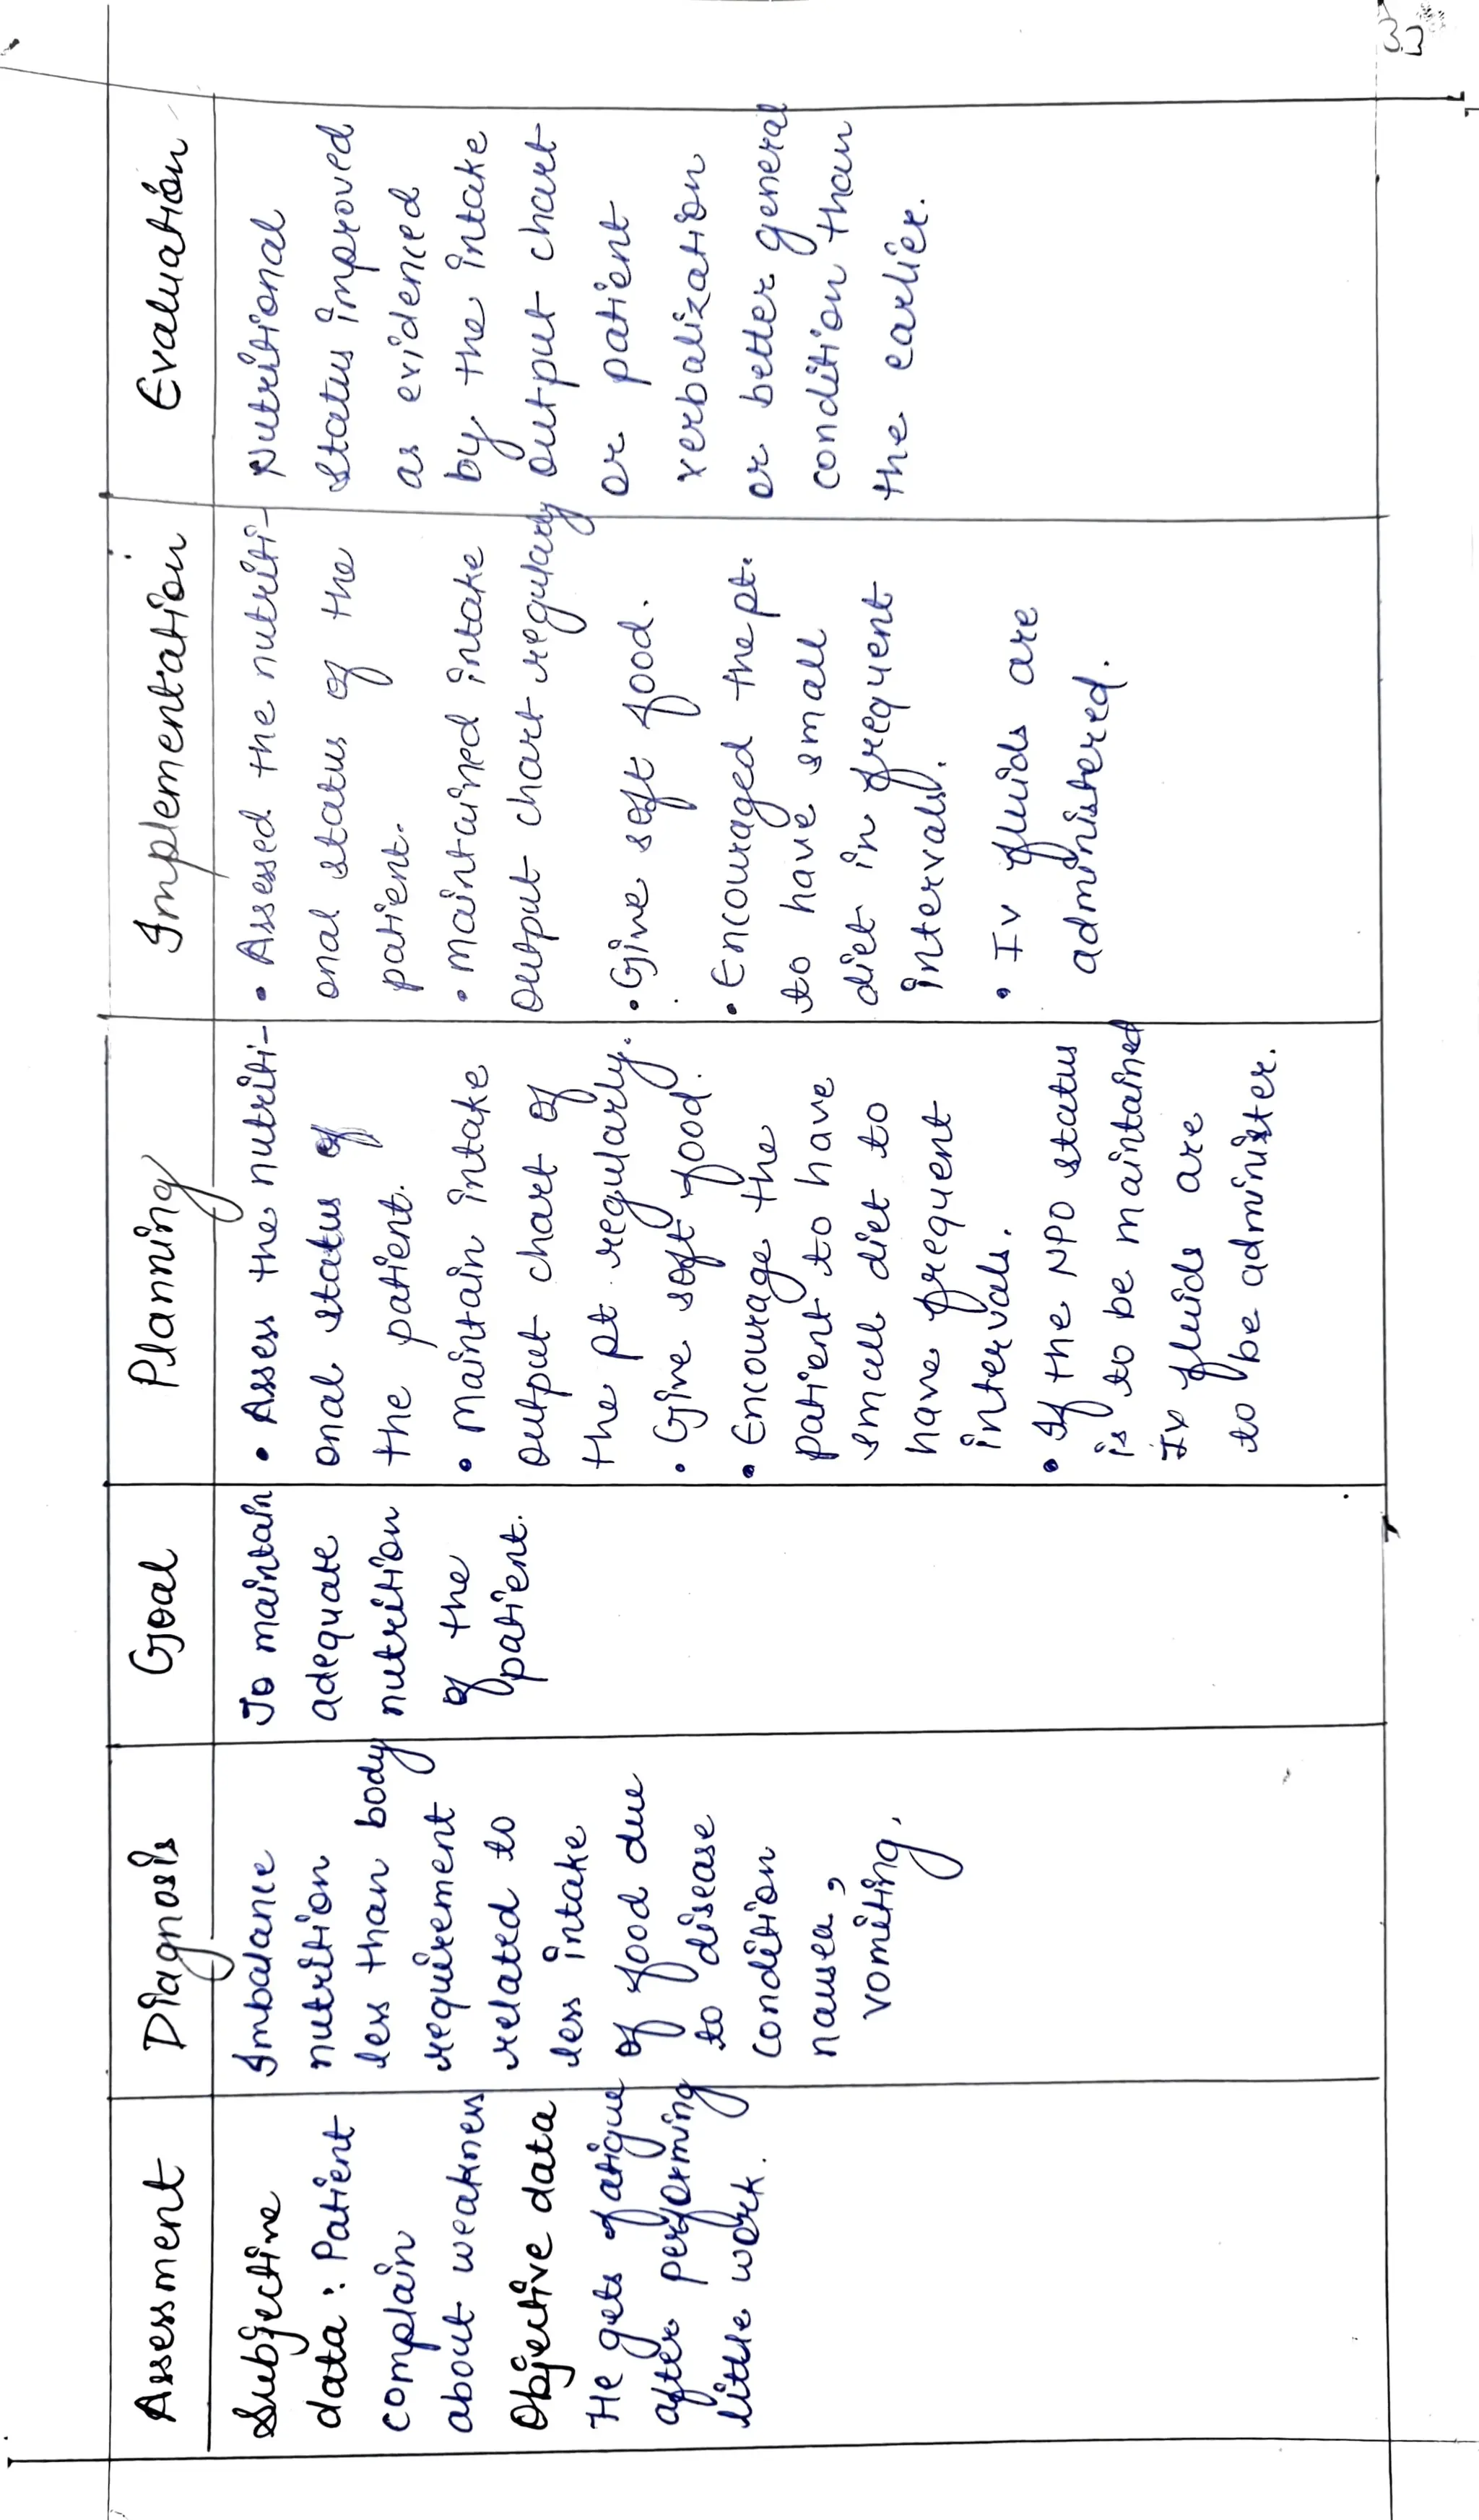 Assessment
Subjective
data : Patient
complain
about weakness
Objective data
He gets fatigue
after performing
little work.
Diagnosis
Imbalance
nutrition
less than body
requirement
related to
less intake
of food due
to disease
condition
nausea,
vomiting,
Goal
To maintain
adequate
nutrition
of the
patient.
Planning
• Assess the nutriti-
onal status of
the patient.
• Maintain intake
output chart of
the pt regularly.
• Give soft food.
• Encourage the
patient to have
small diet to
have frequent
intervals.
• If the NPO status
is to be maintained
IV fluids are
to be administer.
Implementation
• Assessed the nutriti-
onal status of the
patient.
• maintained intake
output chart regularly
• Give soft food.
• Encouraged the pt.
to have small
diet in frequent
intervals.
• IV fluids are
administered.
Evaluation
Nutritional
status improved
as evidenced
by the intake
output chart
or patient
verbalization
or better general
condition than
the earlier.